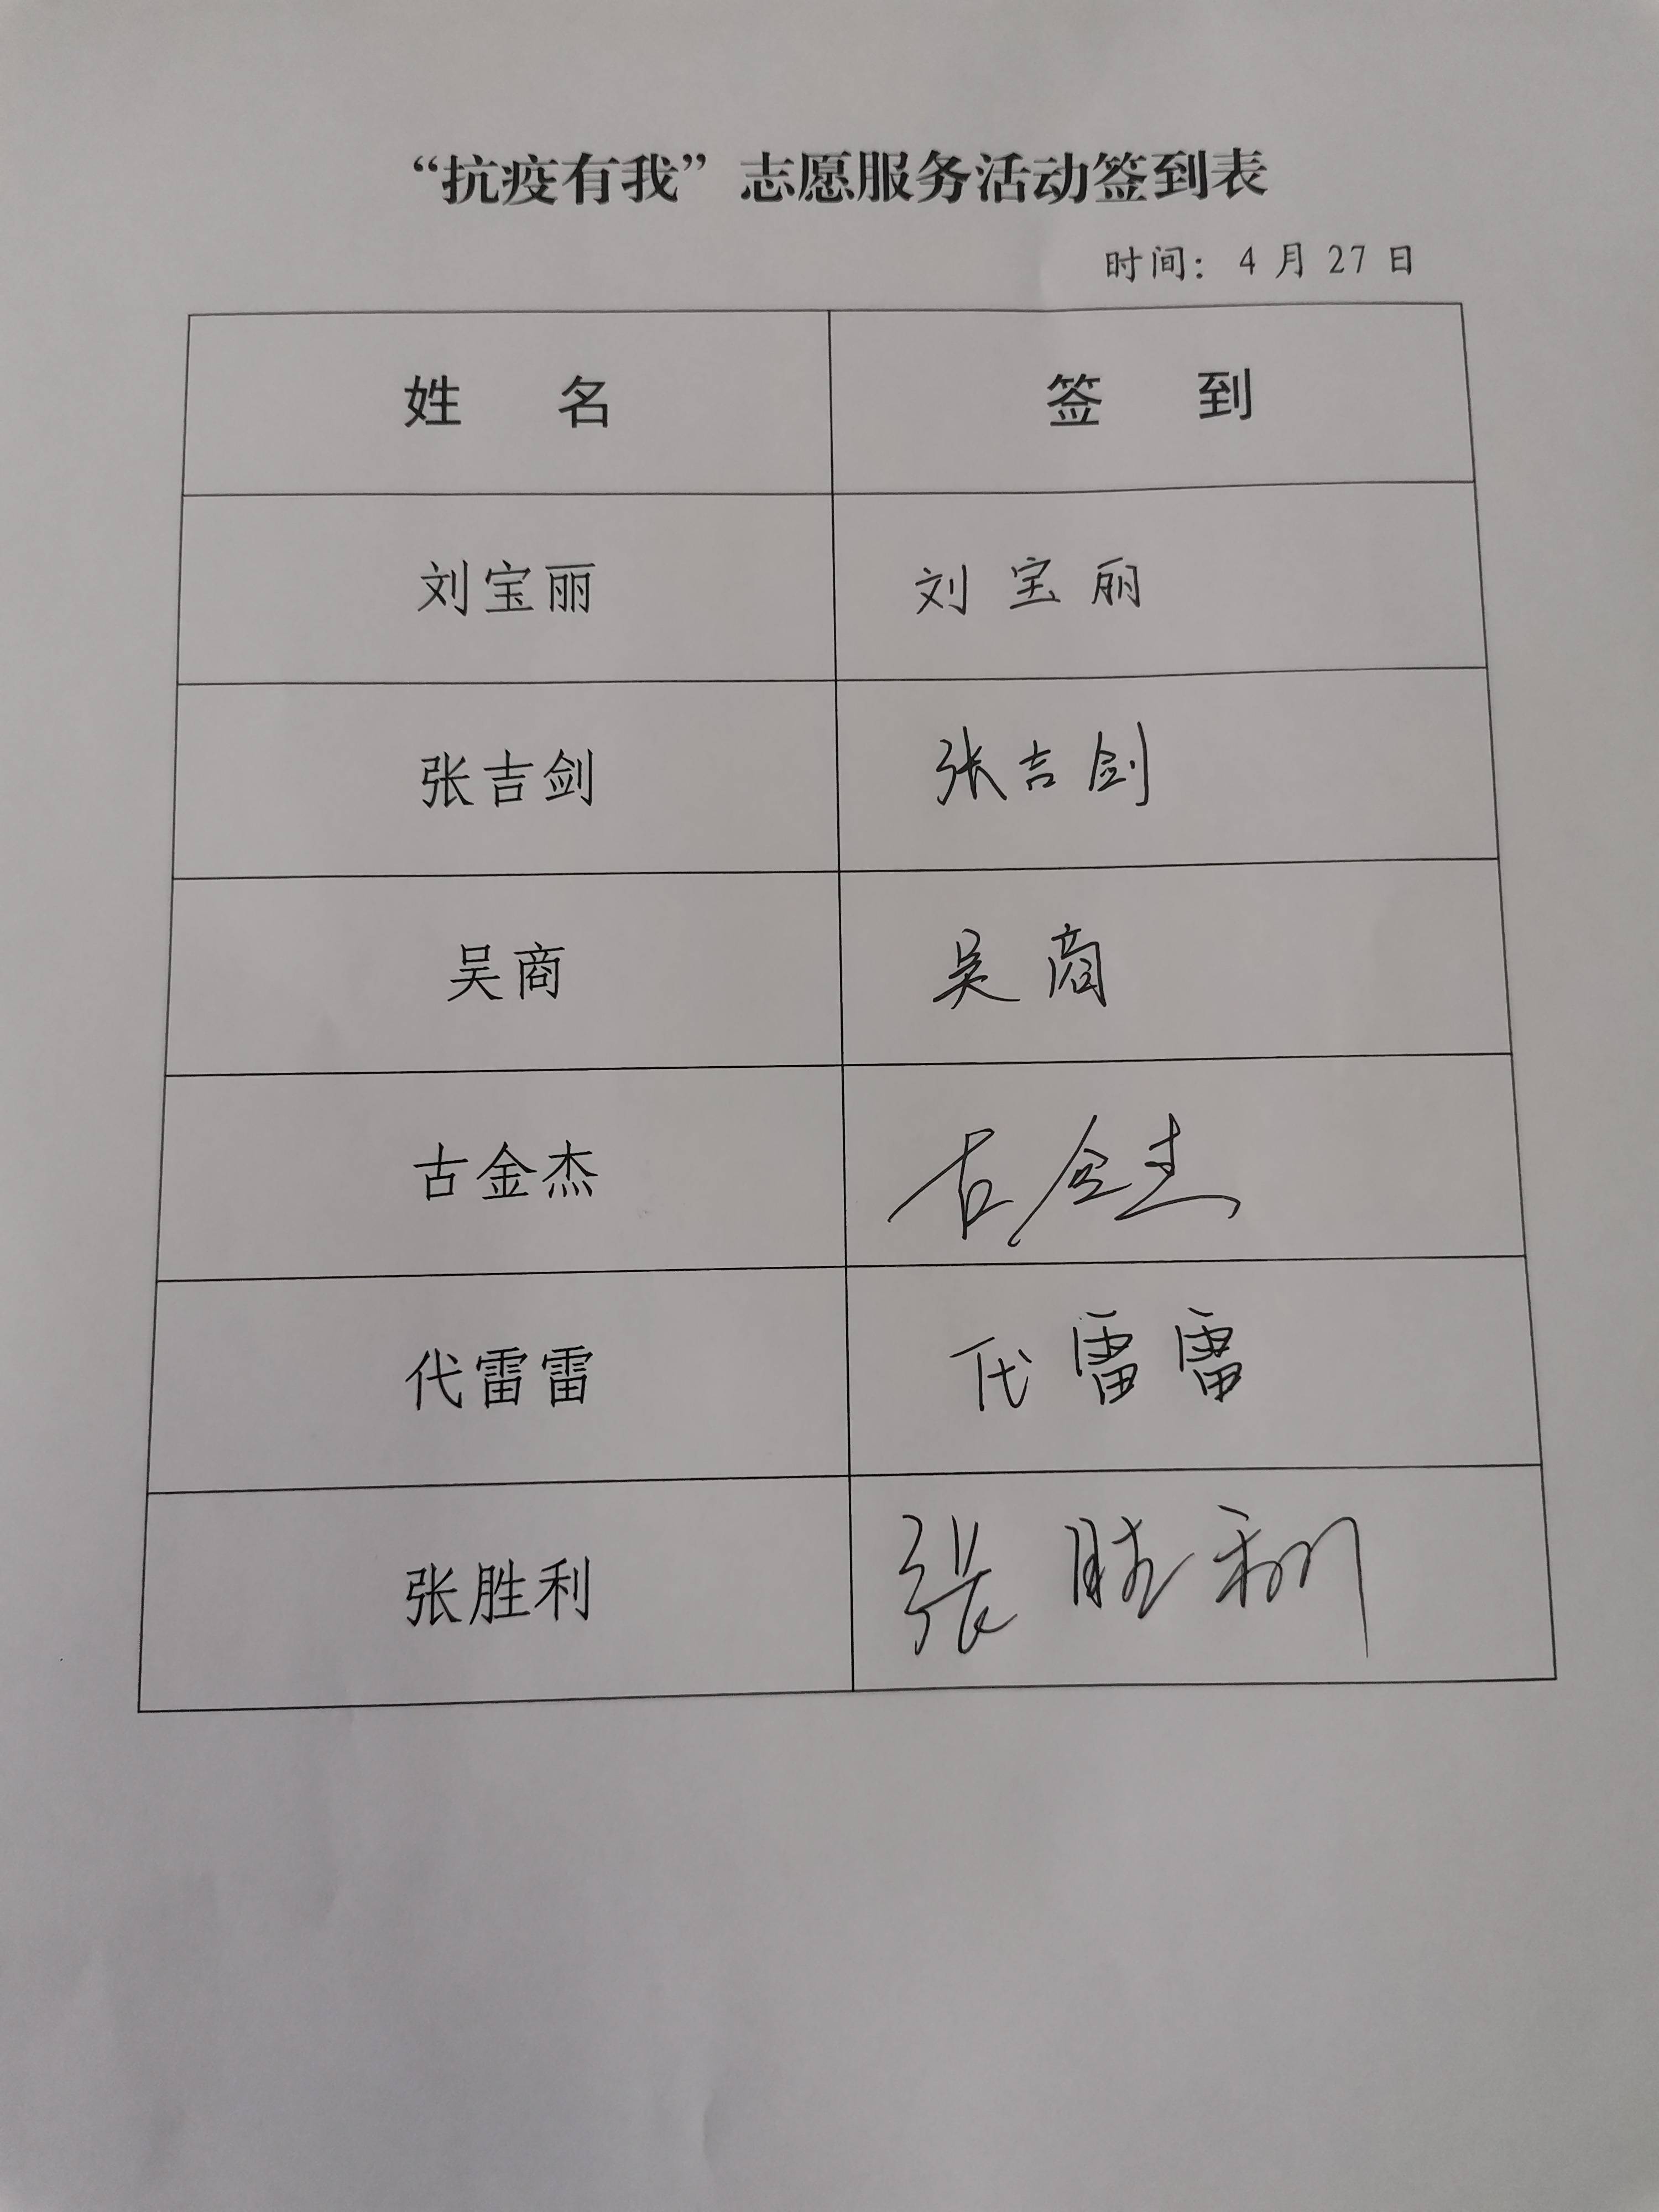 “抗疫有我”志愿服务活动签到表
时间：4月27日
姓 名 签 到
刘宝丽 刘宝丽
张吉剑 张吉剑
吴商 吴商
古金杰 古金杰
代雷雷 代雷雷
张胜利 张胜利